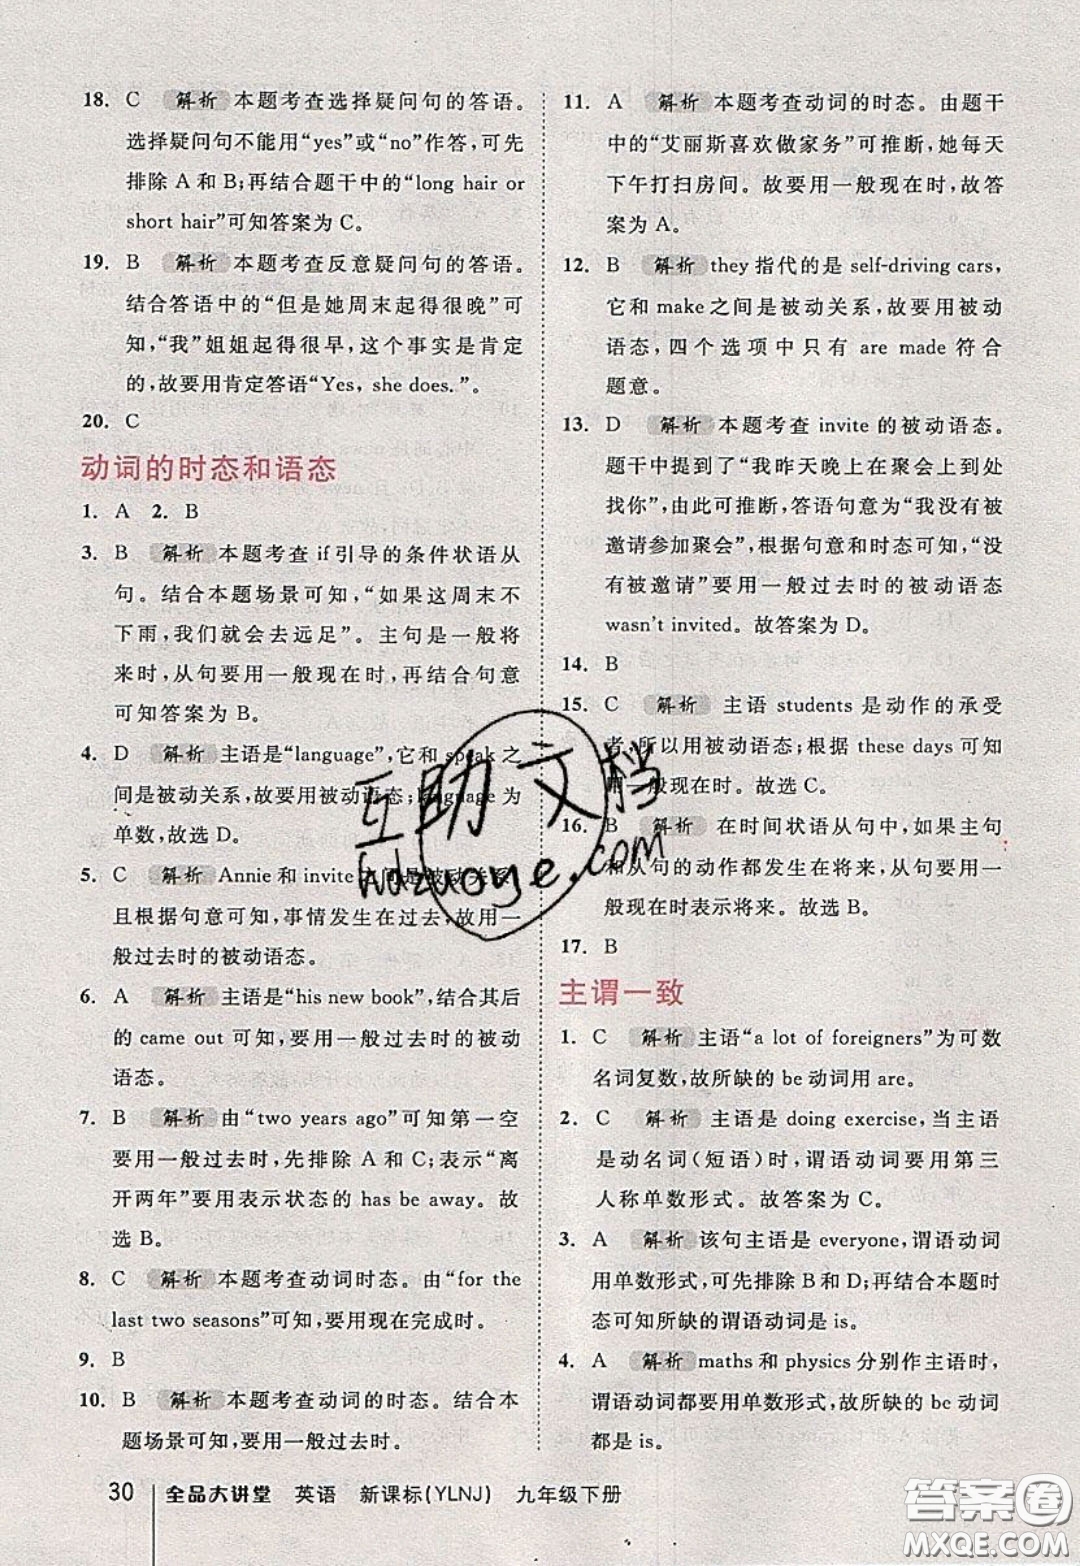 18. C 解析 本题考查选择疑问句的答语。
选择疑问句不能用“yes”或“no”作答,可先
排除 A 和 B;再结合题干中的“long hair or
short hair”可知答案为 C。
19. B 解析 本题考查反意疑问句的答语。
结合答语中的“但是她周末起得很晚”可
知,“我”姐姐起得很早,这个事实是肯定
的,故要用肯定答语“Yes, she does.”。
20. C
动词的时态和语态
1. A 2. B
3. B 解析 本题考查 if 引导的条件状语从
句。结合本题场景可知,“如果这周末不
下雨,我们就会去远足”。主句是一般将
来时,从句要用一般现在时,再结合句意
可知答案为 B。
4. D 解析 主语是“language”,它和 speak 之
间是被动关系,故要用被动语态;language 为
单数,故选 D。
5. C 解析 Annie 和 invite 之间是被动关系,
且根据句意可知,事情发生在过去,故用一
般过去时的被动语态。
6. A 解析 主语是“his new book”,结合其后
的 came out 可知,要用一般过去时的被动
语态。
7. B 解析 由“two years ago”可知第一空
要用一般过去时,先排除 A 和 C;表示“离
开两年”要用表示状态的 has be away。故
选 B。
8. C 解析 本题考查动词时态。由“for the
last two seasons”可知,要用现在完成时。
9. B
10. B 解析 本题考查动词的时态。结合本
题场景可知,要用一般过去时。
11. A 解析 本题考查动词的时态。由题干
中的“艾丽斯喜欢做家务”可推断,她每天
下午打扫房间。故要用一般现在时,故答
案为 A。
12. B 解析 they 指代的是 self-driving cars,
它和 make 之间是被动关系,故要用被动
语态,四个选项中只有 are made 符合
题意。
13. D 解析 本题考查 invite 的被动语态。
题干中提到了“我昨天晚上在聚会上到处
找你”,由此可推断,答语句意为“我没有被
邀请参加聚会”,根据句意和时态可知,“没
有被邀请”要用一般过去时的被动语态
wasn't invited。故答案为 D。
14. B
15. C 解析 主语 students 是动作的承受
者,所以用被动语态;根据 these days 可知
用一般现在时。故选 C。
16. B 解析 在时间状语从句中,如果主句
和从句的动作都发生在将来,从句要用一
般现在时表示将来。故选 B。
17. B
主谓一致
1. C 解析 主语“a lot of foreigners”为可数
名词复数,故所缺的 be 动词用 are。
2. C 解析 主语是 doing exercise,当主语
是动名词(短语)时,谓语动词要用第三
人称单数形式。故答案为 C。
3. A 解析 该句主语是 everyone,谓语动词
用单数形式,可先排除 B 和 D;再结合本题时
态可知所缺的谓语动词是 is。
4. A 解析 maths 和 physics 分别作主语时,
谓语动词都要用单数形式,故所缺的 be 动词
都是 is。
30 全品大讲堂 英语 新课标(YLNJ) 九年级下册
互助文档
hdzuoye.com
答案圈
MXQE.COM